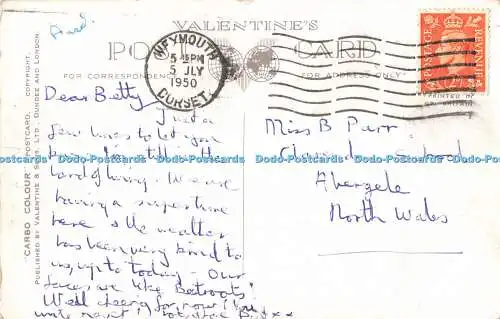 Ard.
VALENTINE'S
POST CARD
FOR CORRESPONDENCE
FOR ADDRESS ONLY
WEYMOUTH
5 15 PM
5 JLY
1950
DORSET
POSTAGE REVENUE
PRINTED IN
GT. BRITAIN
"CARBO COLOUR" POSTCARD. COPYRIGHT.
PUBLISHED BY VALENTINE & SONS, LTD., DUNDEE AND LONDON.
Dear Betty Just a
few lines to let you
know I'm still in the
land of living. We are
having a super time
here & the weather
has been very kind to
us, up to today - Our
faces are like Beetroots!
Well cheerio for now! You
write next!
Miss B Purr.
School
Abergele
North Wales
Dodo-Postcards Dodo-Postcards Dodo-Postcards Dodo-Postcards Dodo-Postcards